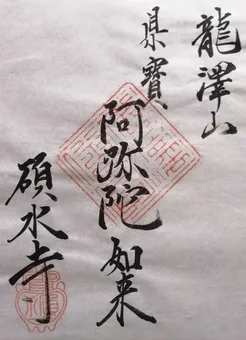 龍澤山
県寶
阿弥陀如来
碩水寺